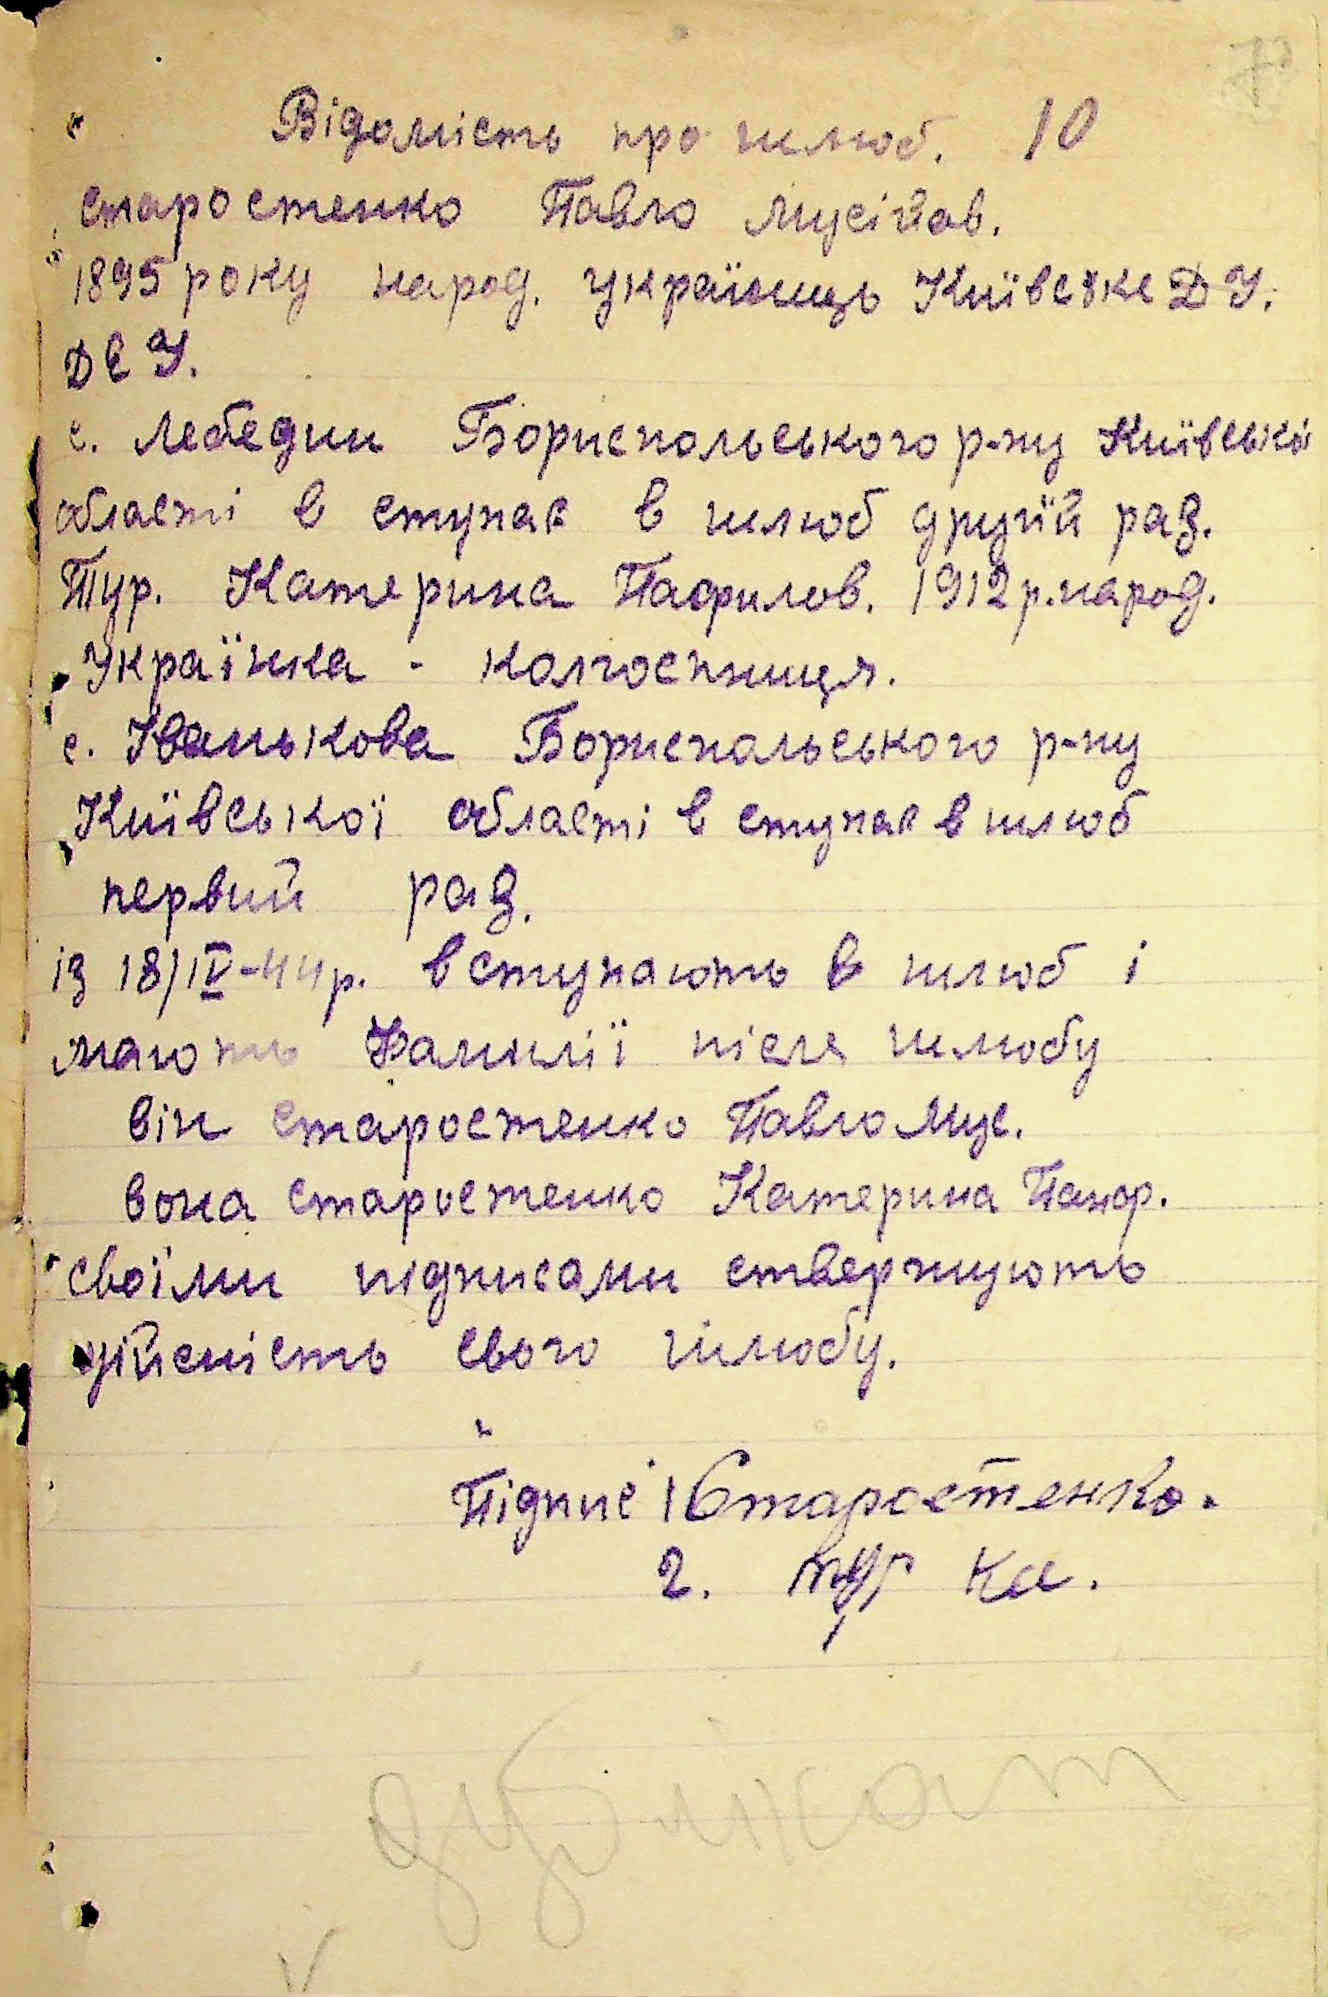 Відомість про шлюб. 10
старостенко Павло Мусійов.
1895 року народ. українець Київське ДУ.
ДЕУ.
с. Лебедин Бориспольського р-ну Київської
області в ступає в шлюб другий раз.
Тур. Катерина Пафилов. 1912 р. народ.
Українка - колгоспниця.
с. Іванькова Бориспольського р-ну
Київської області в ступає в шлюб
первий раз.
із 18/IV-44 р. вступають в шлюб і
мають Фамилії після шлюбу
він старостенко Павло Мус.
вона старостенко Катерина
своїми підписами ствержують
дійсність свого шлюбу.
Підпис 1 Старостенко.
2. тур Ка.
дублікат